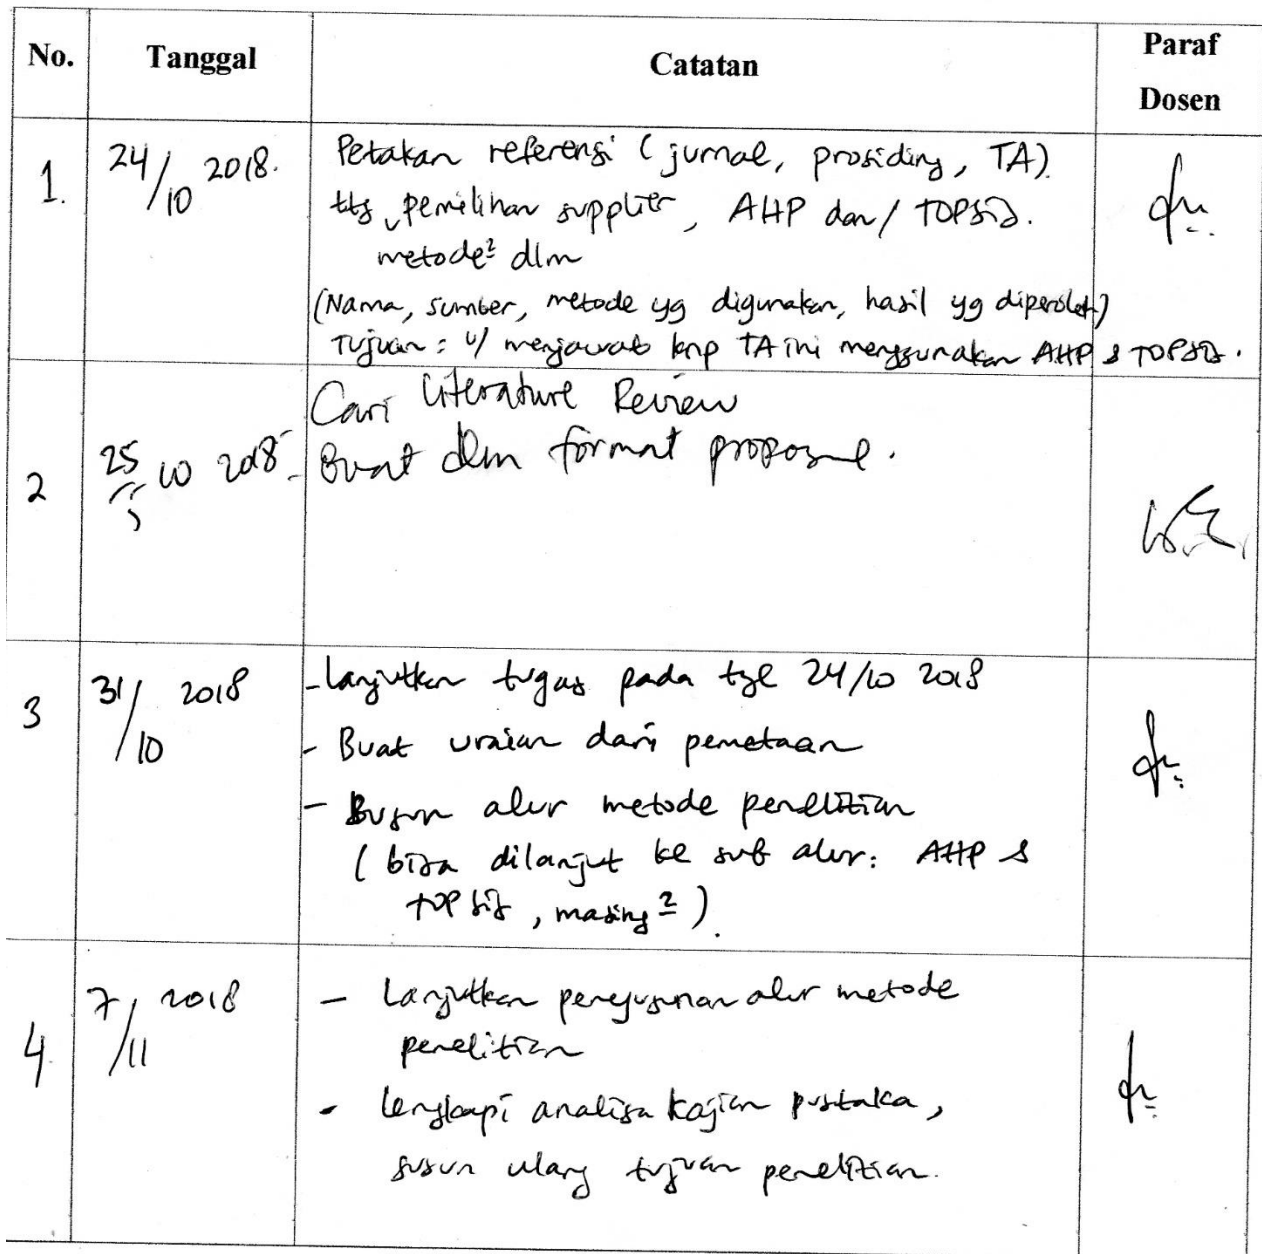 No. Tanggal Catatan Paraf Dosen
1. 24/10 2018. Petakan referensi (jurnal, prosiding, TA)
ttg pemilihan supplier, AHP dan/ TOPSIS.
metode² dlm
(Nama, sumber, metode yg digunakan, hasil yg diperoleh)
Tujuan : u/ menjawab knp TA ini menggunakan AHP & TOPSIS.
Cari literature Review
2 25 10 2018 Buat dlm format proposal.
3 31/10 2018 - Lanjutkan tugas pada tgl 24/10 2018
- Buat uraian dari pemetaan
- Susun alur metode penelitian
( bisa dilanjut ke sub alur: AHP &
TOPSIS, masing²).
4 7/11 2018 - Lanjutkan penyusunan alur metode
penelitian
- Lengkapi analisa kajian pustaka,
susun ulang tujuan penelitian.